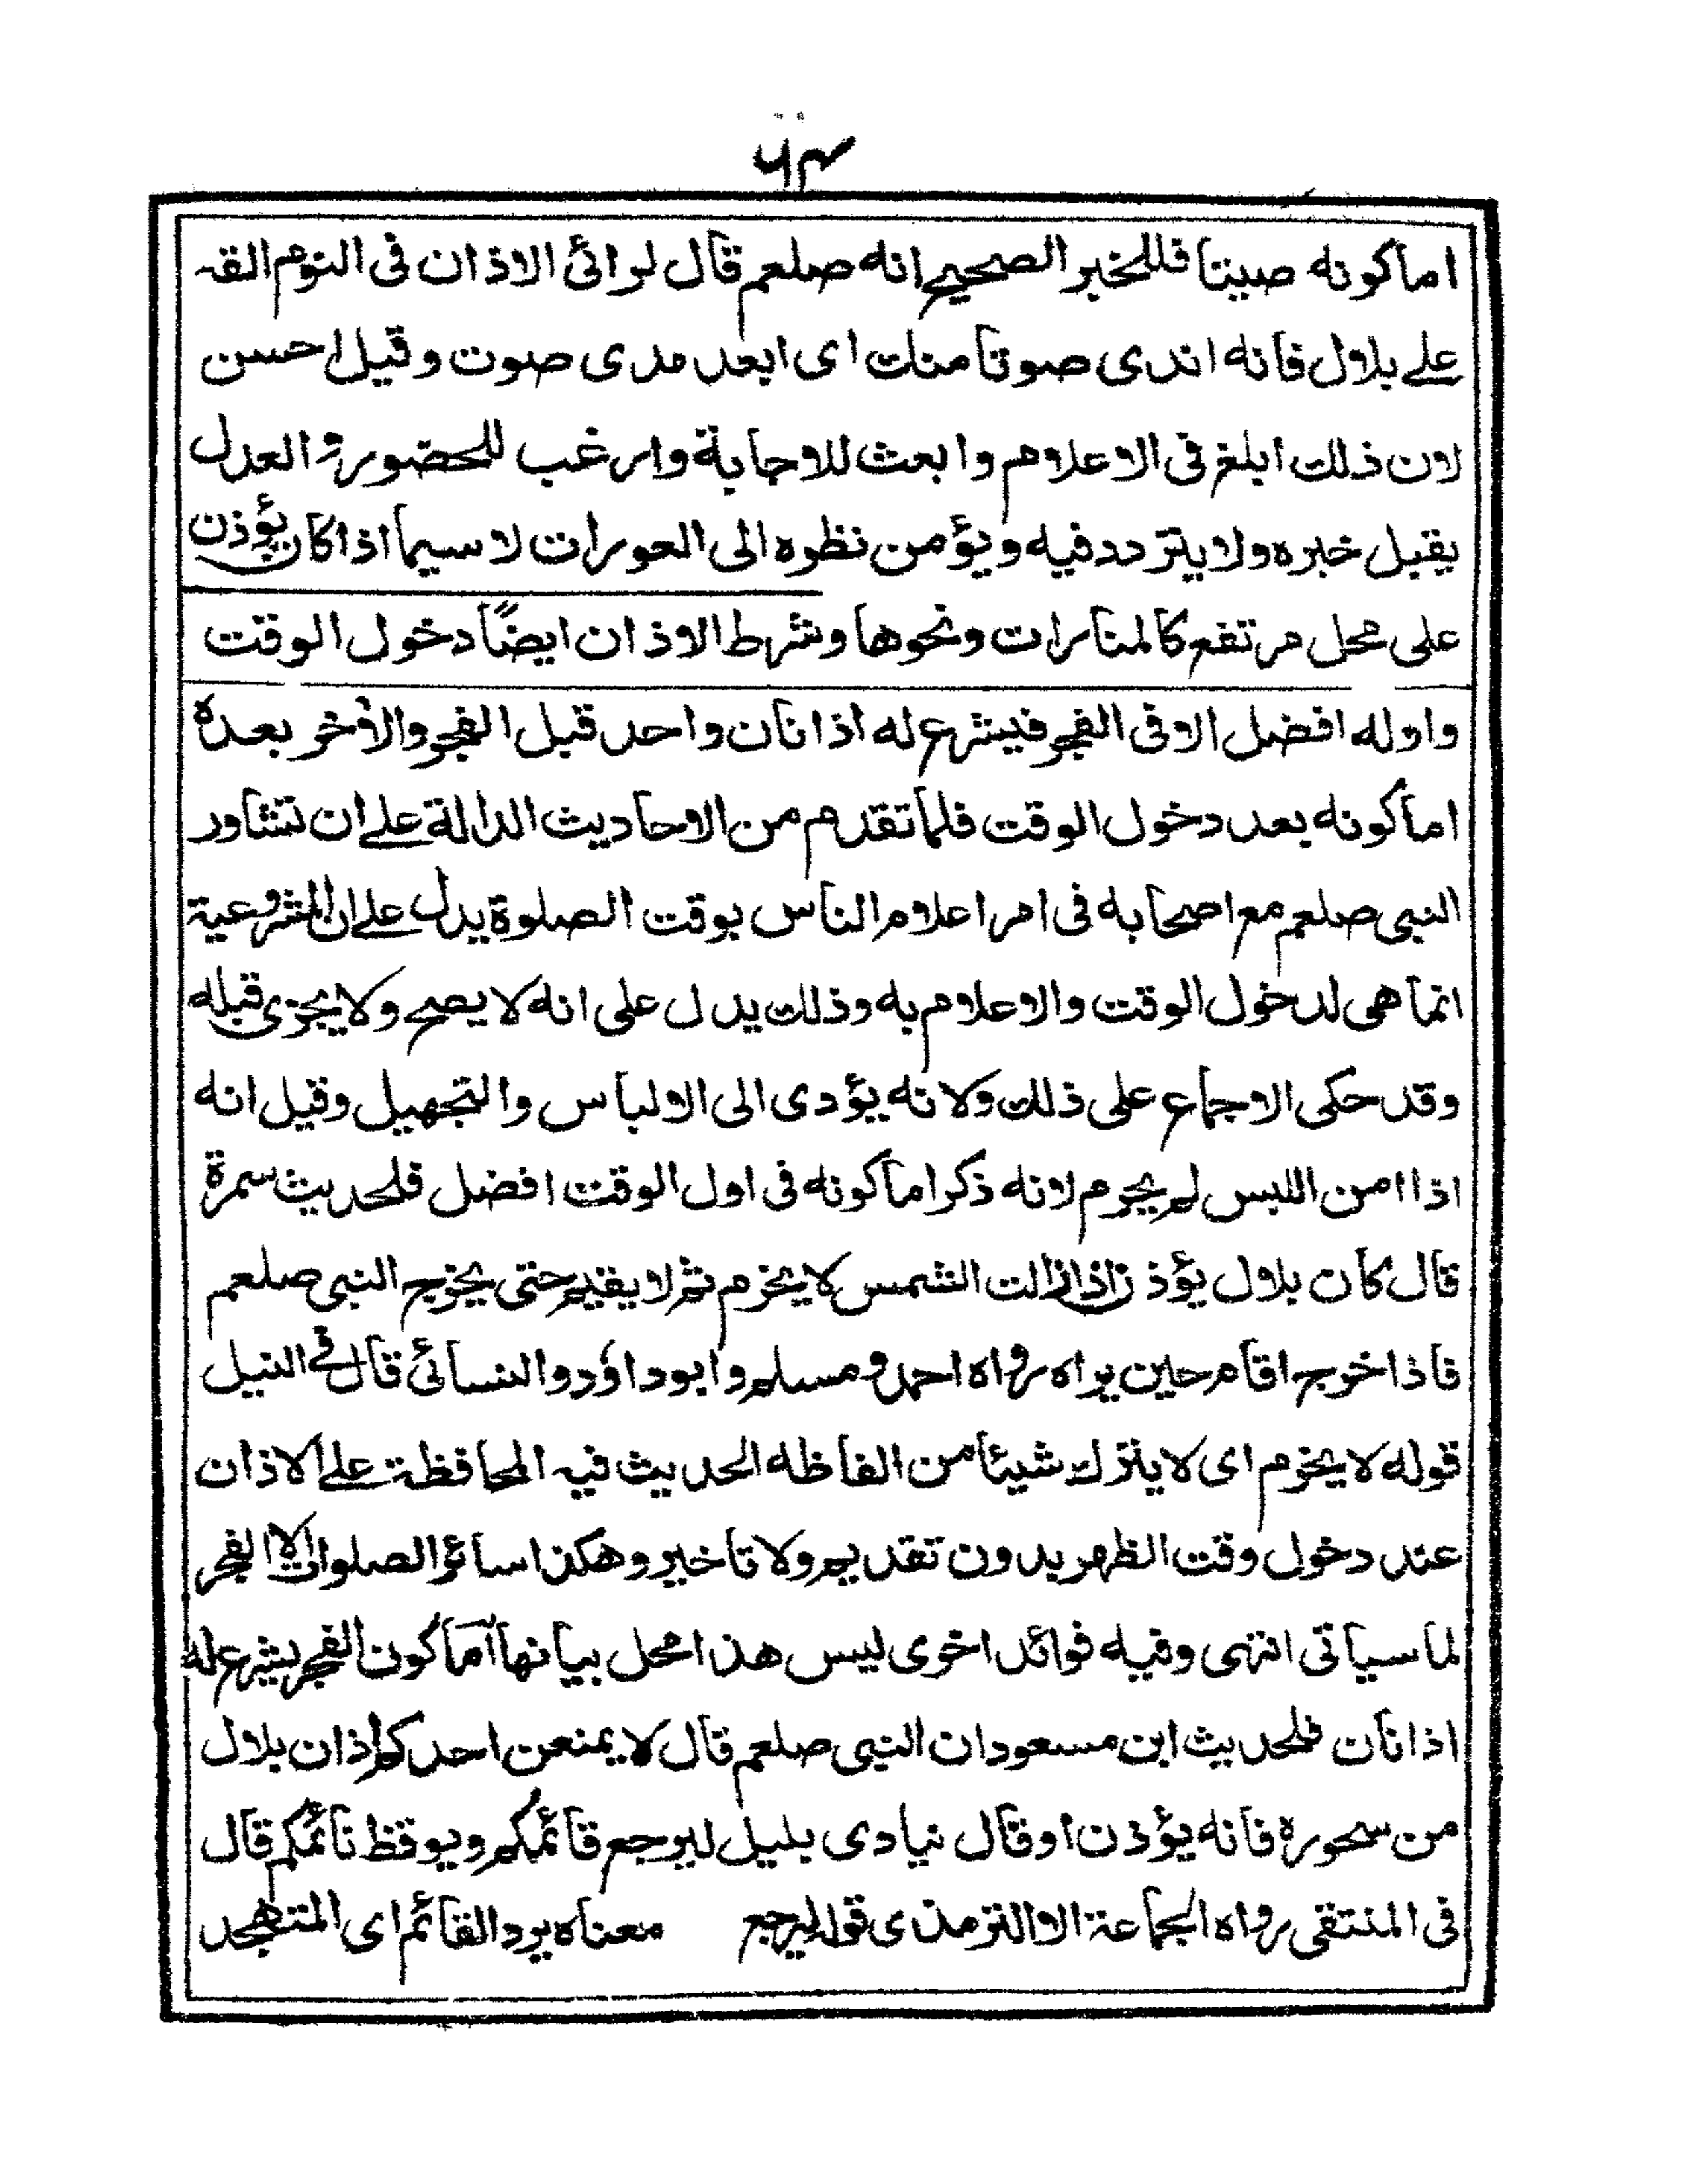 ٦٣
اما كونه صيتا فللخبر الصحيح انه صلعم قال لرائى الاذان فى النوم القه
على بلال فانه اندى صوتا منك اى ابعد مدى صوت وقيل احسن
لان ذلك ابلغ فى الاعلام وابعث للاجابة وارغب للحضور والعدل
يقبل خبره ولا يتردد فيه ويؤمن نظره الى العورات لا سيما اذا كان يؤذن
على محل مرتفع كالمنارات ونحوها وشرط الاذان ايضًا دخول الوقت
واوله افضل الا فى الفجر فيشرع له اذانان واحد قبل الفجر والآخر بعده
اما كونه بعد دخول الوقت فلما تقدم من الاحاديث الدالة على ان تشاور
النبى صلعم مع اصحابه فى امر اعلام الناس بوقت الصلوة يدل على ان المشروعية
انما هى لدخول الوقت والاعلام به وذلك يدل على انه لا يصح ولا يجزى قبله
وقد حكى الاجماع على ذلك ولانه يؤدى الى الالباس والتجهيل وقيل انه
اذا امن اللبس لم يحرم لانه ذكر اما كونه فى اول الوقت افضل فلحديث سمرة
قال كان بلال يؤذن اذا زالت الشمس لا يخرم ثم لا يقيم حتى يخرج النبى صلعم
فاذا خرج اقام حين يراه رواه احمد و مسلم وابو داؤد والنسائى قال فى النيل
قوله لا يخرم اى لا يترك شيئا من الفاظه الحديث فيه المحافظة على الاذان
عند دخول وقت الظهر بدون تقديم ولا تاخير وهكذا سائر الصلوات الا الفجر
لما سياتى انتهى وفيه فوائد اخرى ليس هذا محل بيانها اما كون الفجر يشرع له
اذانان فلحديث ابن مسعود ان النبى صلعم قال لا يمنعن احدكم اذان بلال
من سحوره فانه يؤذن او قال ينادى بليل ليرجع قائمكم ويوقظ نائمكم قال
فى المنتقى رواه الجماعة الا الترمذى قوله ليرجع معناه يرد القائم اى المتهجد